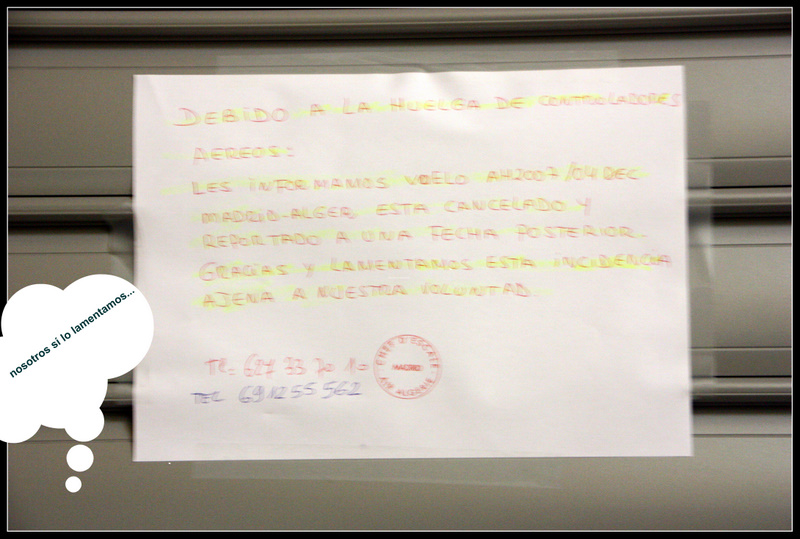 DEBIDO A LA HUELGA DE CONTROLADORES
AEREOS:
LES INFORMAMOS VUELO AH2007/04 DEC
MADRID-ALGER ESTA CANCELADO Y
REPORTADO A UNA FECHA POSTERIOR.
GRACIAS Y LAMENTAMOS ESTA INCIDENCIA
AJENA A NUESTRA VOLUNTAD.
nosotros sí lo lamentamos...
627 33 70 10
TEL 691255562
CHEF D'ESCALE
MADRID
AIR ALGERIE